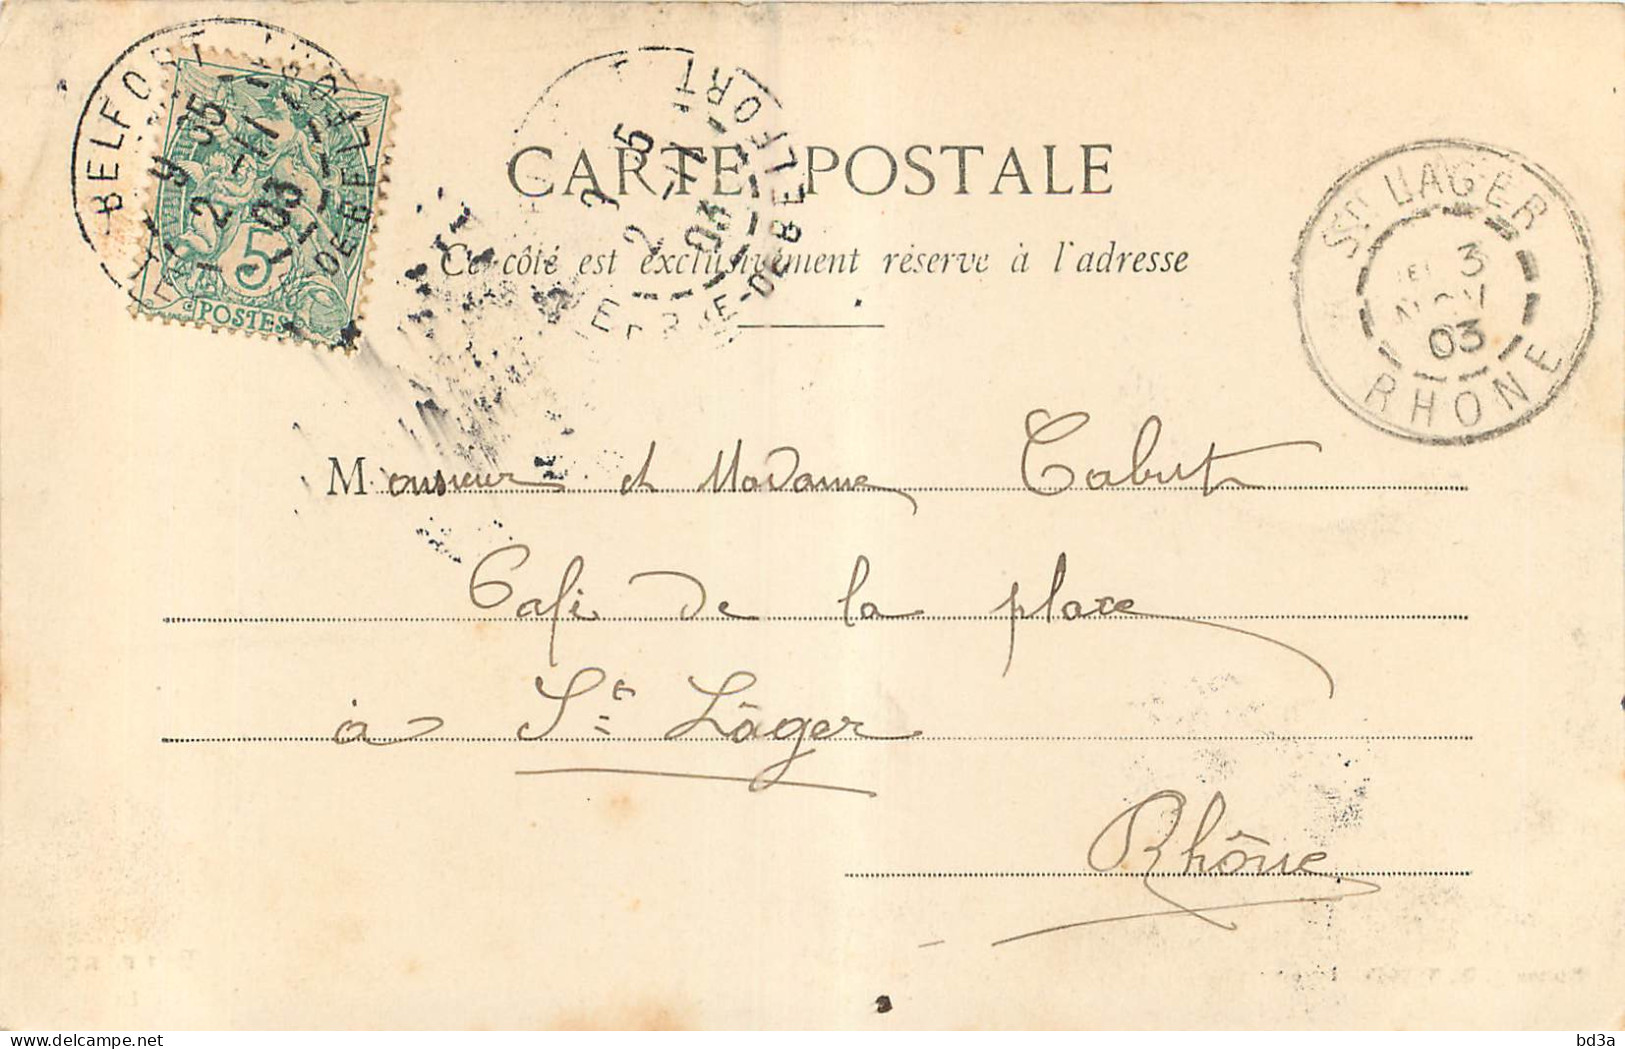 BELFORT
9 35
2 -11
03
Tre DE BELFORT
5
POSTES
BELFORT
7 5
2 -11
03
DE-BELFORT
CARTE POSTALE
Ce côté est exclusivement réservé à l'adresse
ST LAGER
3
NOV
03
RHONE
Monsieur et Madame Cabut
Café de la place
à St Lâger
Rhône
bd3a